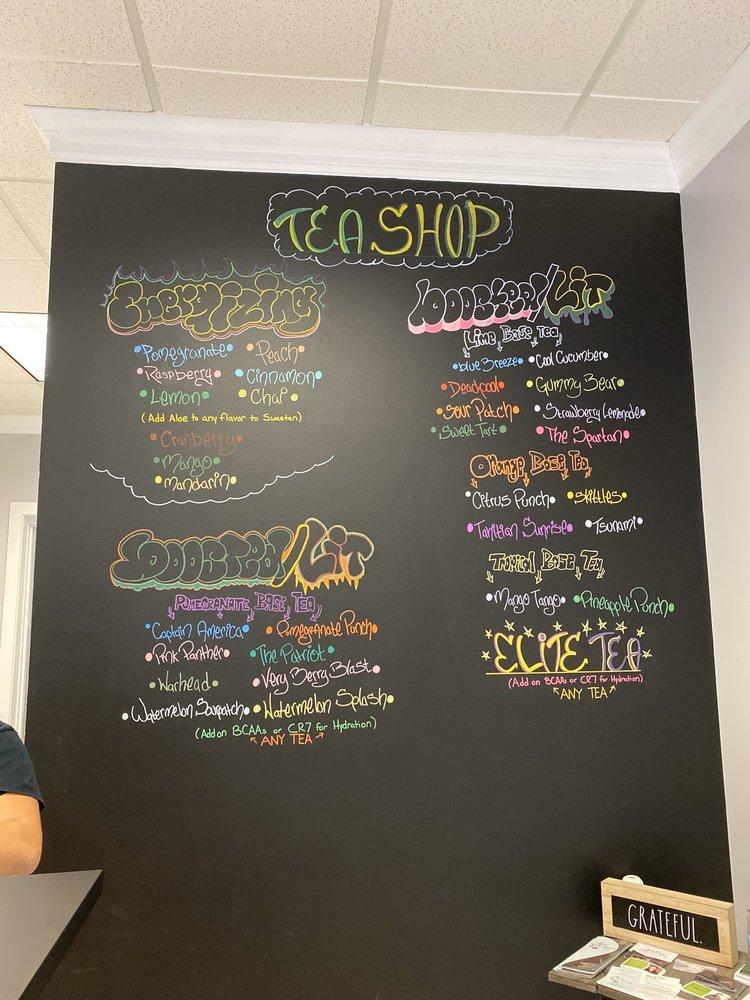 TEA SHOP
Energizing
•Pomegranate• •Peach•
•Raspberry• •Cinnamon•
•Lemon• •Chai•
(Add Aloe to any flavor to Sweeten)
•Cranberry•
•Mango•
•Mandarin•
Boosted/Lit
POMEGRANATE BASE TEA
•Captain America• •Pomegranate Punch•
•Pink Panther• •The Patriot•
•Warhead• •Very Berry Blast•
•Watermelon Sourpatch• •Watermelon Splash•
(Add on BCAAs or CR7 for Hydration)
ANY TEA
Boosted/Lit
Lime Base Tea
•Blue Breeze• •Cool Cucumber•
•Deadpool• •Gummy Bear•
•Sour Patch• •Strawberry Lemonade•
•Sweet Tart• •The Spartan•
Orange Base Tea
•Citrus Punch• •Skittles•
•Tahitian Sunrise• •Tsunami•
Tropical Base Tea
•Mango Tango• •Pineapple Punch•
ELITE TEA
(Add on BCAAs or CR7 for Hydration)
ANY TEA
GRATEFUL.